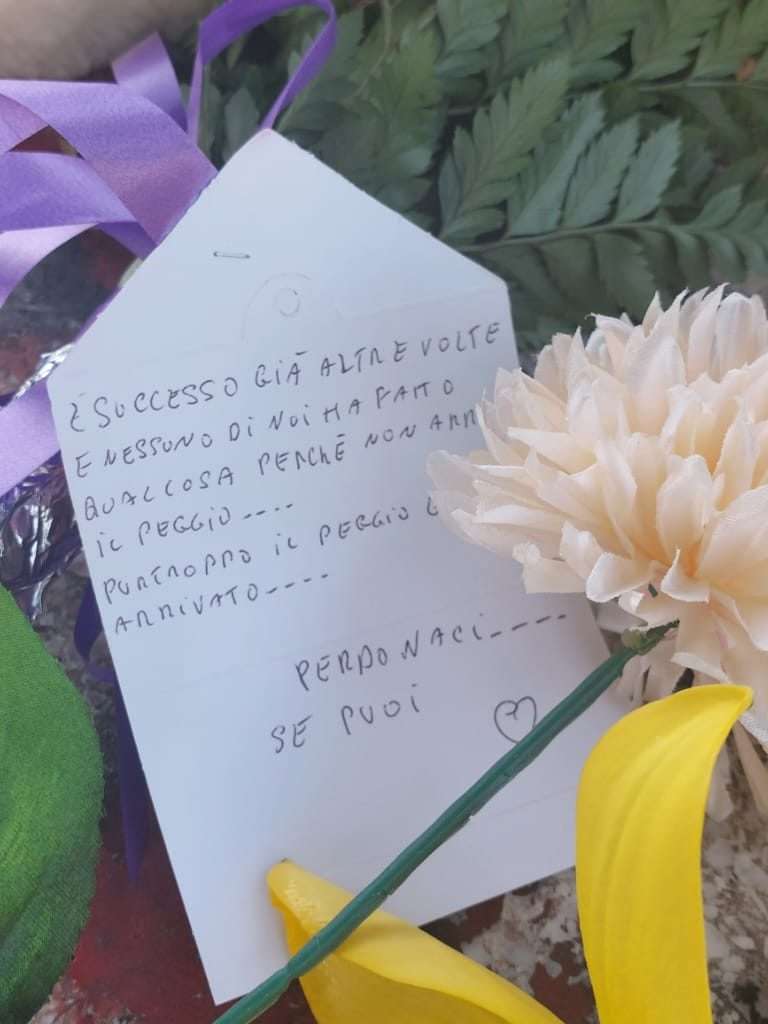 È SUCCESSO GIÀ ALTRE VOLTE
E NESSUNO DI NOI HA FATTO
QUALCOSA PERCHÈ NON
IL PEGGIO----
PURTROPPO IL PEGGIO
ARRIVATO----
PERDONACI----
SE PUOI